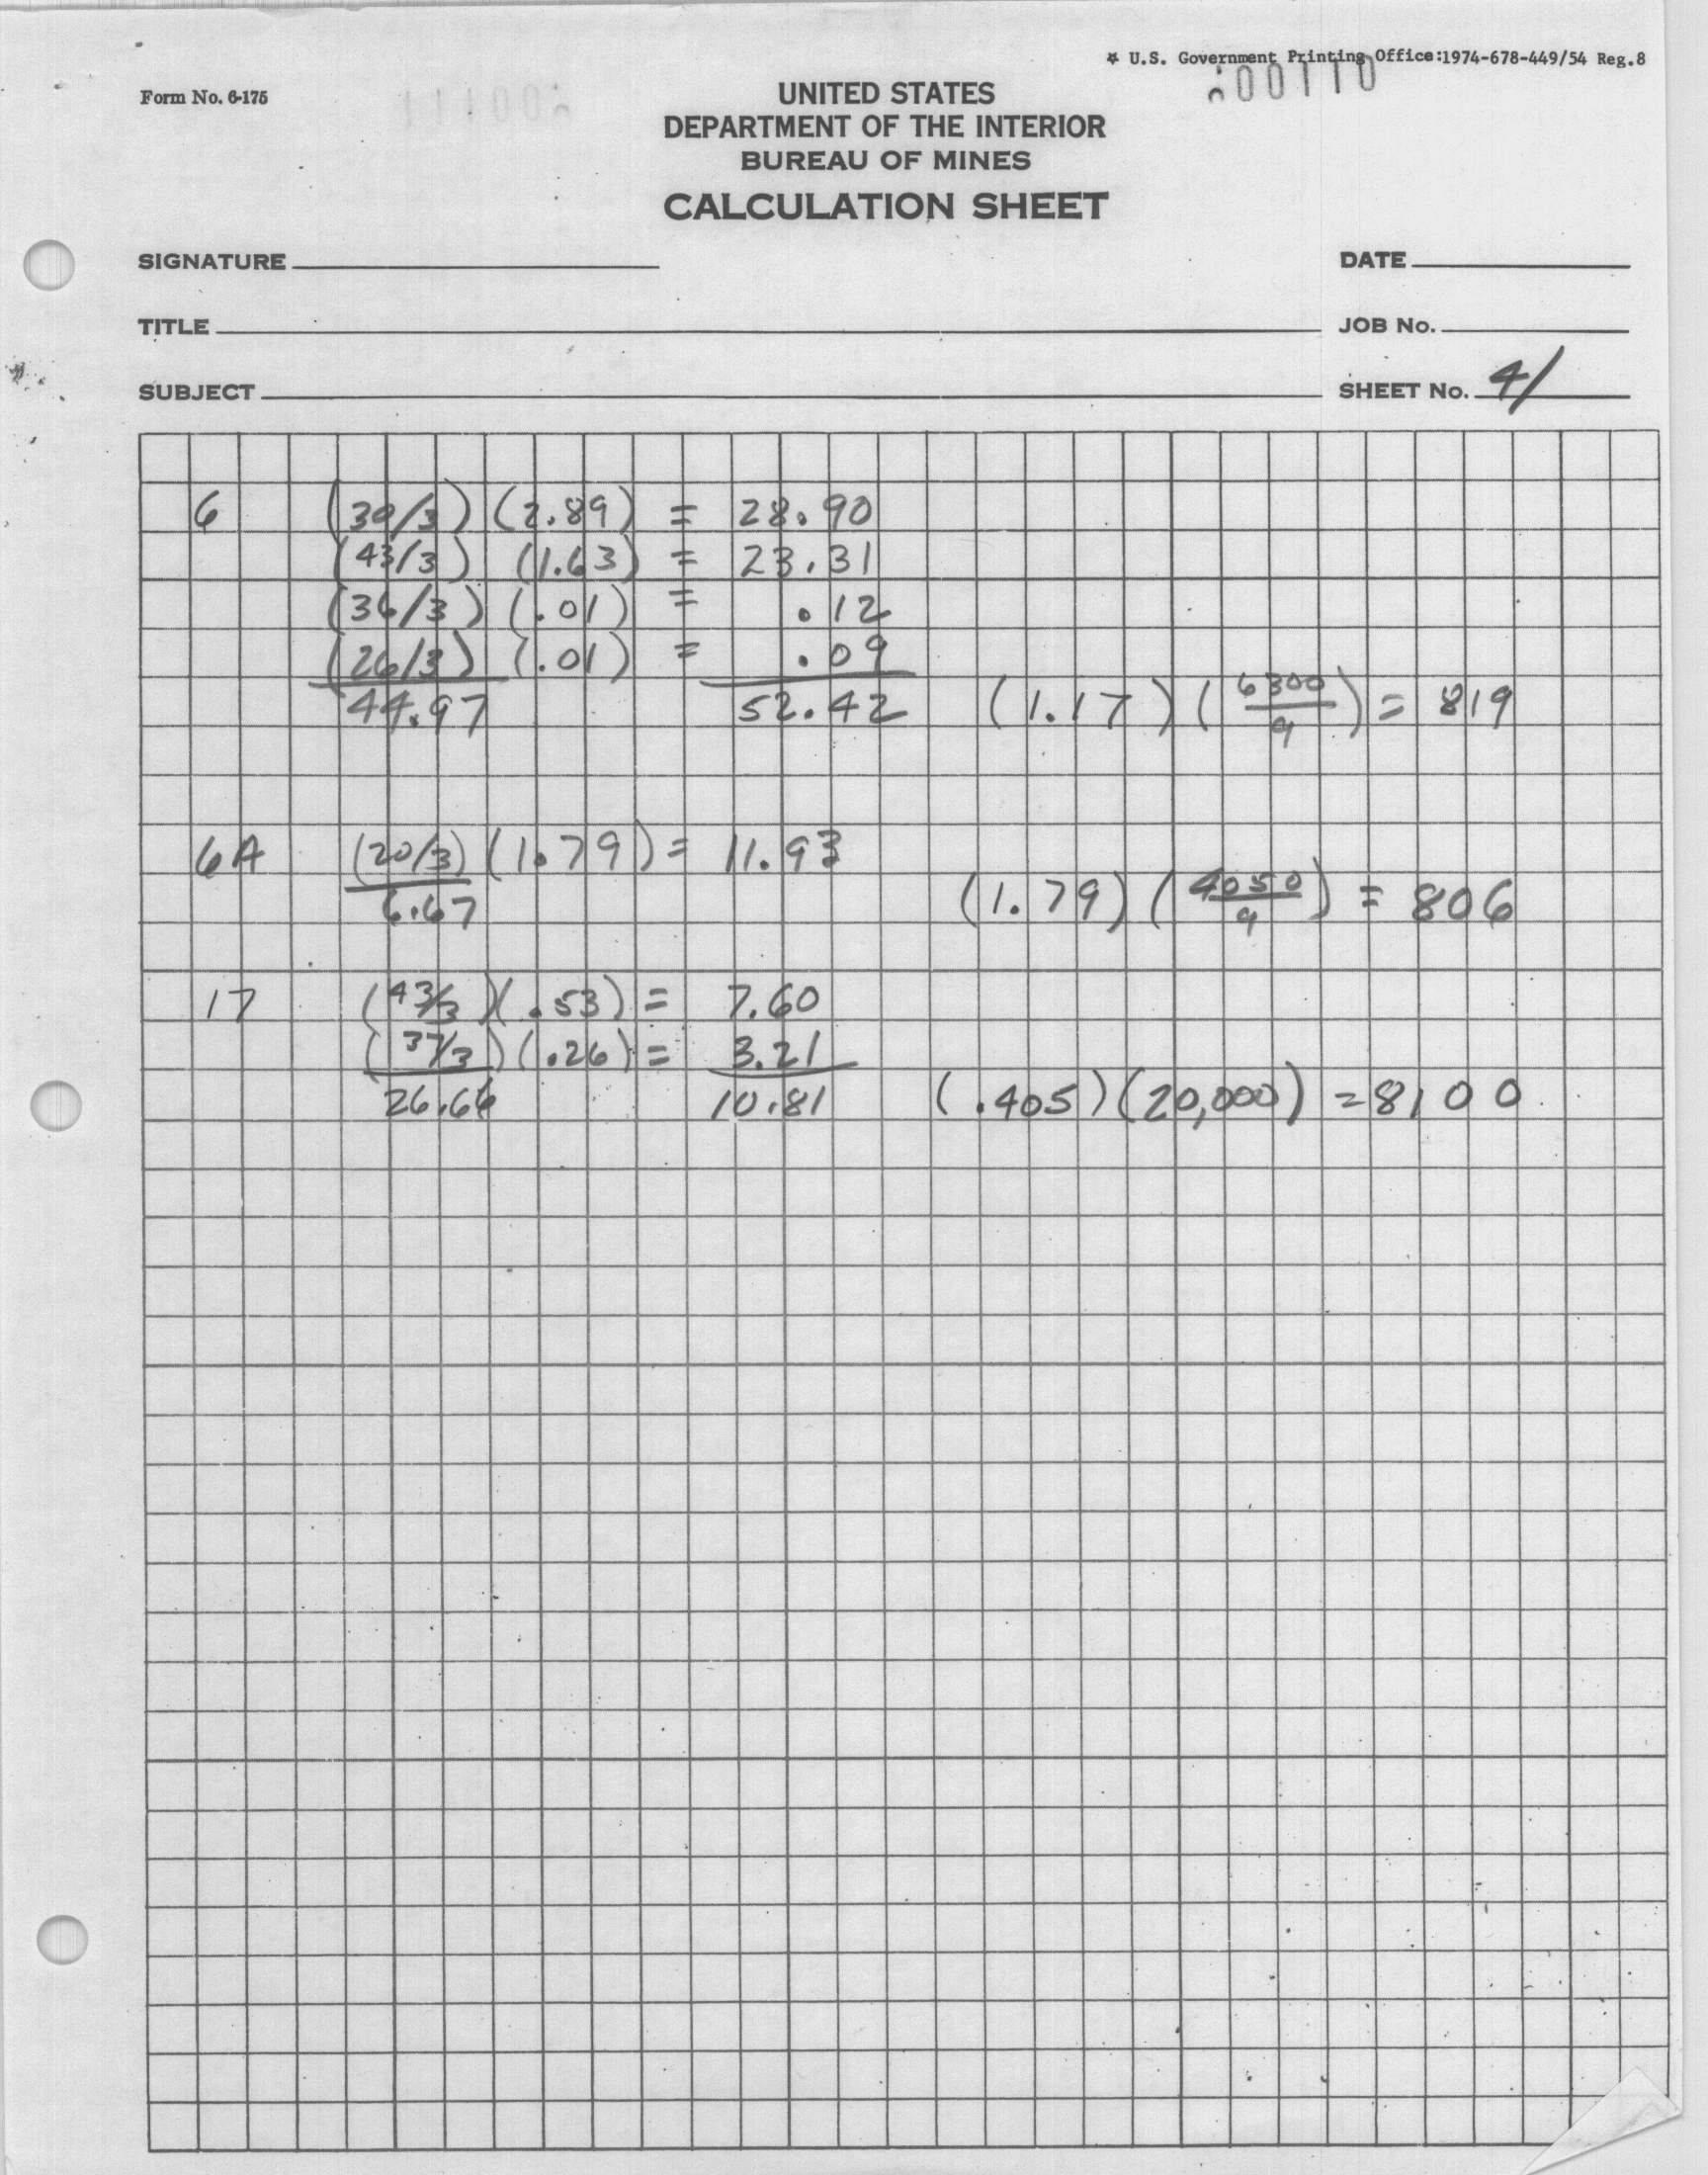 * U.S. Government Printing Office:1974-678-449/54 Reg.8
Form No. 6-175
UNITED STATES
DEPARTMENT OF THE INTERIOR
BUREAU OF MINES
CALCULATION SHEET
SIGNATURE DATE
TITLE JOB No.
SUBJECT SHEET No. 4/
6 (30/3) (2.89) = 28.90
(43/3) (1.63) = 23.31
(36/3) (.01) = .12
(26/3) (.01) = .09
44.97 52.42 (1.17) (6300/9) = 819
6A (20/3) (1.79) = 11.93
6.67 (1.79) (4050/9) = 806
17 (43/3) (.53) = 7.60
(37/3) (.26) = 3.21
26.66 10.81 (.405) (20,000) = 8,100